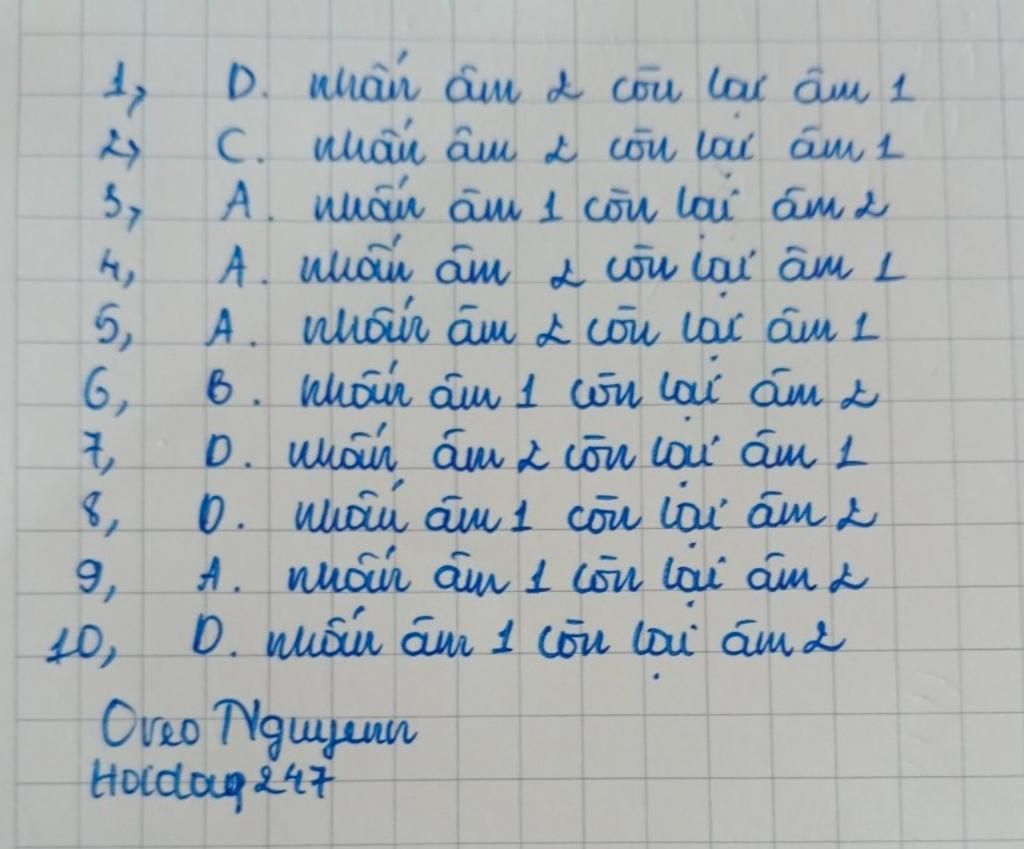 1, D. nhấn âm 2 còn lại âm 1
2, C. nhấn âm 2 còn lại âm 1
3, A. nhấn âm 1 còn lại âm 2
4, A. nhấn âm 2 còn lại âm 1
5, A. nhấn âm 2 còn lại âm 1
6, B. nhấn âm 1 còn lại âm 2
7, D. nhấn âm 2 còn lại âm 1
8, D. nhấn âm 1 còn lại âm 2
9, A. nhấn âm 1 còn lại âm 2
10, D. nhấn âm 1 còn lại âm 2
Oreo Nguyenn
Hoidap247